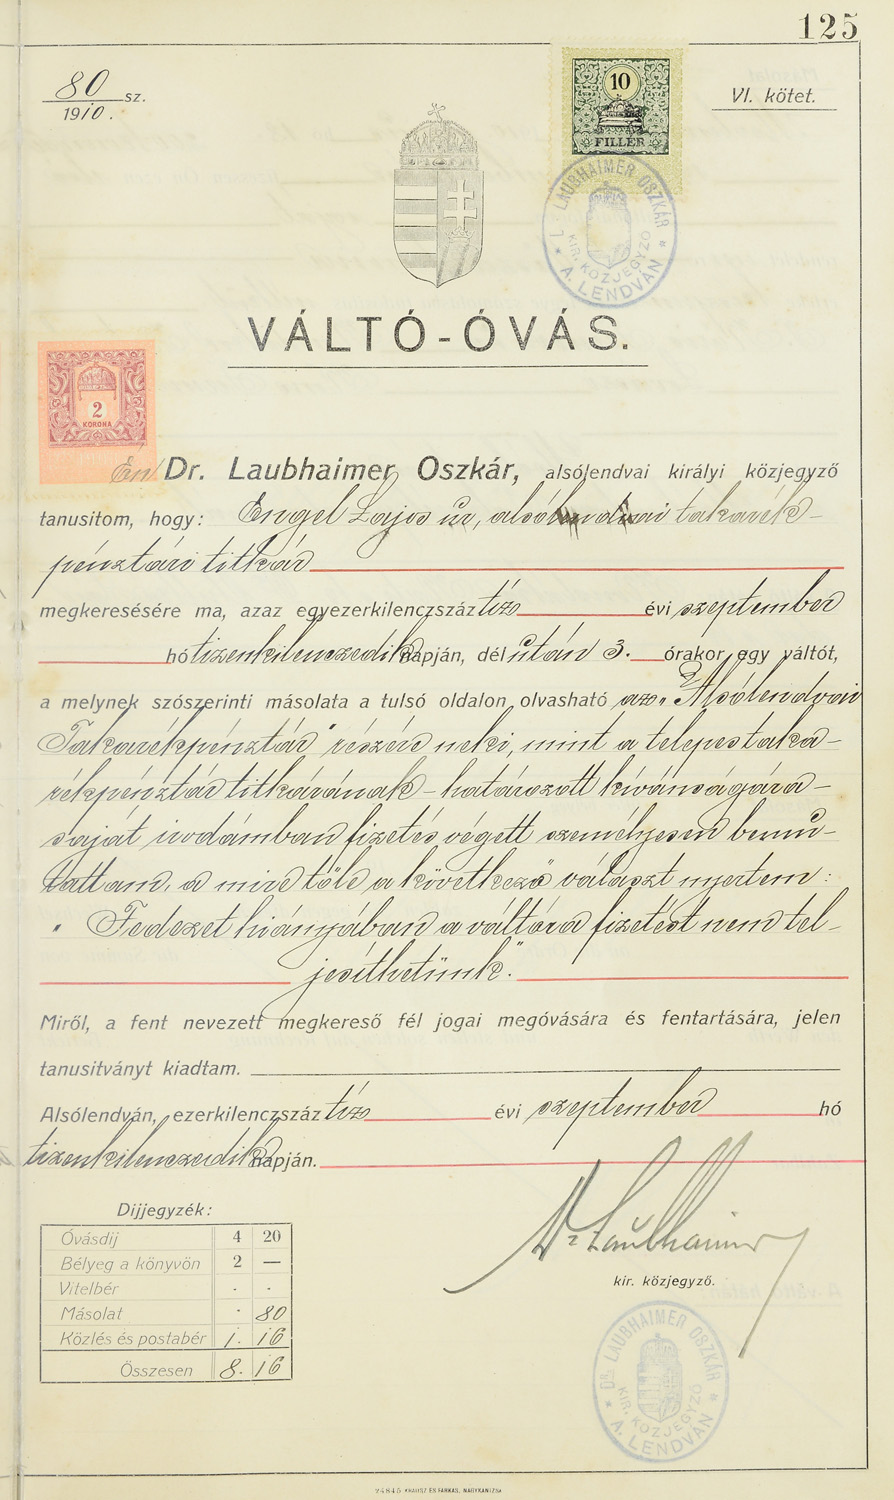 125
80 sz.
1910.
VI. kötet.
10
FILLÉR
DR. LAUBHAIMER OSZKÁR
KIR. KÖZJEGYZŐ
* A. LENDVÁN *
VÁLTÓ-ÓVÁS.
2
KORONA
Én Dr. Laubhaimer Oszkár, alsólendvai királyi közjegyző
tanusitom, hogy: Engel Lajos úr, alsólendvai takarék-
pénztári titkár
megkeresésére ma, azaz egyezerkilenczszáz tíz évi szeptember
hó tizenkilenczedik napján, dél után 3. órakor egy váltót,
a melynek szószerinti másolata a tulsó oldalon olvasható az „Alsólendvai
Takarékpénztár" részére neki, mint a telepes taka-
rékpénztár titkárának – határozott kívánságára –
saját irodámban fizetés végett személyesen bemu-
tattam, a mire tőle a következő választ nyertem:
„Fedezet hiányában a váltóra fizetést nem tel-
jesíthetünk."
Miről, a fent nevezett megkereső fél jogai megóvására és fentartására, jelen
tanusitványt kiadtam.
Alsólendván, ezerkilenczszáz tíz évi szeptember hó
tizenkilenczedik napján.
Dr Laubhaimer
kir. közjegyző.
Dijjegyzék:
Óvásdij 4 20
Bélyeg a könyvön 2 —
Vitelbér . .
Másolat . 80
Közlés és postabér 1. 16
Összesen 8. 16
DR. LAUBHAIMER OSZKÁR
KIR. KÖZJEGYZŐ
* A. LENDVÁN *
24845 KRAUSZ ÉS FARKAS, NAGYKANIZSA